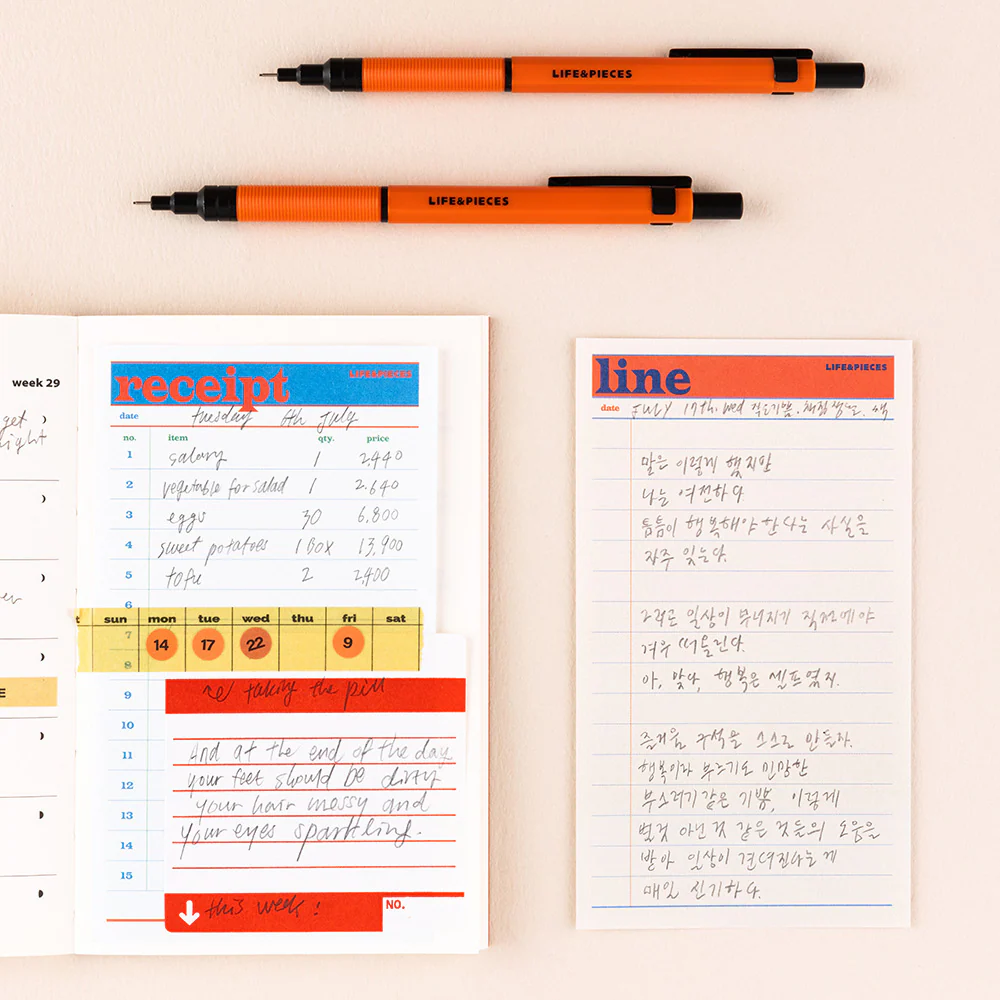 LIFE&PIECES
LIFE&PIECES
week 29
get
night
E
receipt LIFE&PIECES
date Tuesday 6th July
no. item qty. price
1 salary 1 2,440
2 vegetable for salad 1 2.640
3 eggs 30 6.800
4 sweet potatoes 1 BOX 13,900
5 tofu 2 2,400
6
t sun mon tue wed thu fri sat
7 14 17 22 9
8
9 taking the pill
10
11 And at the end of the day
12 your feet should be dirty
13 your hair messy and
14 your eyes sparkling.
15
this week! NO.
line LIFE&PIECES
date JULY 17th. wed
말은 이렇게 했지만
나는 여전하다
틈틈이 행복해야 한다는 사실을
자주 잊는다.
그러곤 일상이 무너지기 직전에야
겨우 떠올린다.
아, 맞다, 행복은 셀프였지.
즐거울 구석을 스스로 만들라.
행복이라 부르기도 민망한
부스러기 같은 기쁨, 이렇게
별것 아닌 것 같은 것들의 도움을
받아 일상이 견뎌진다는 게
매일 신기하다.